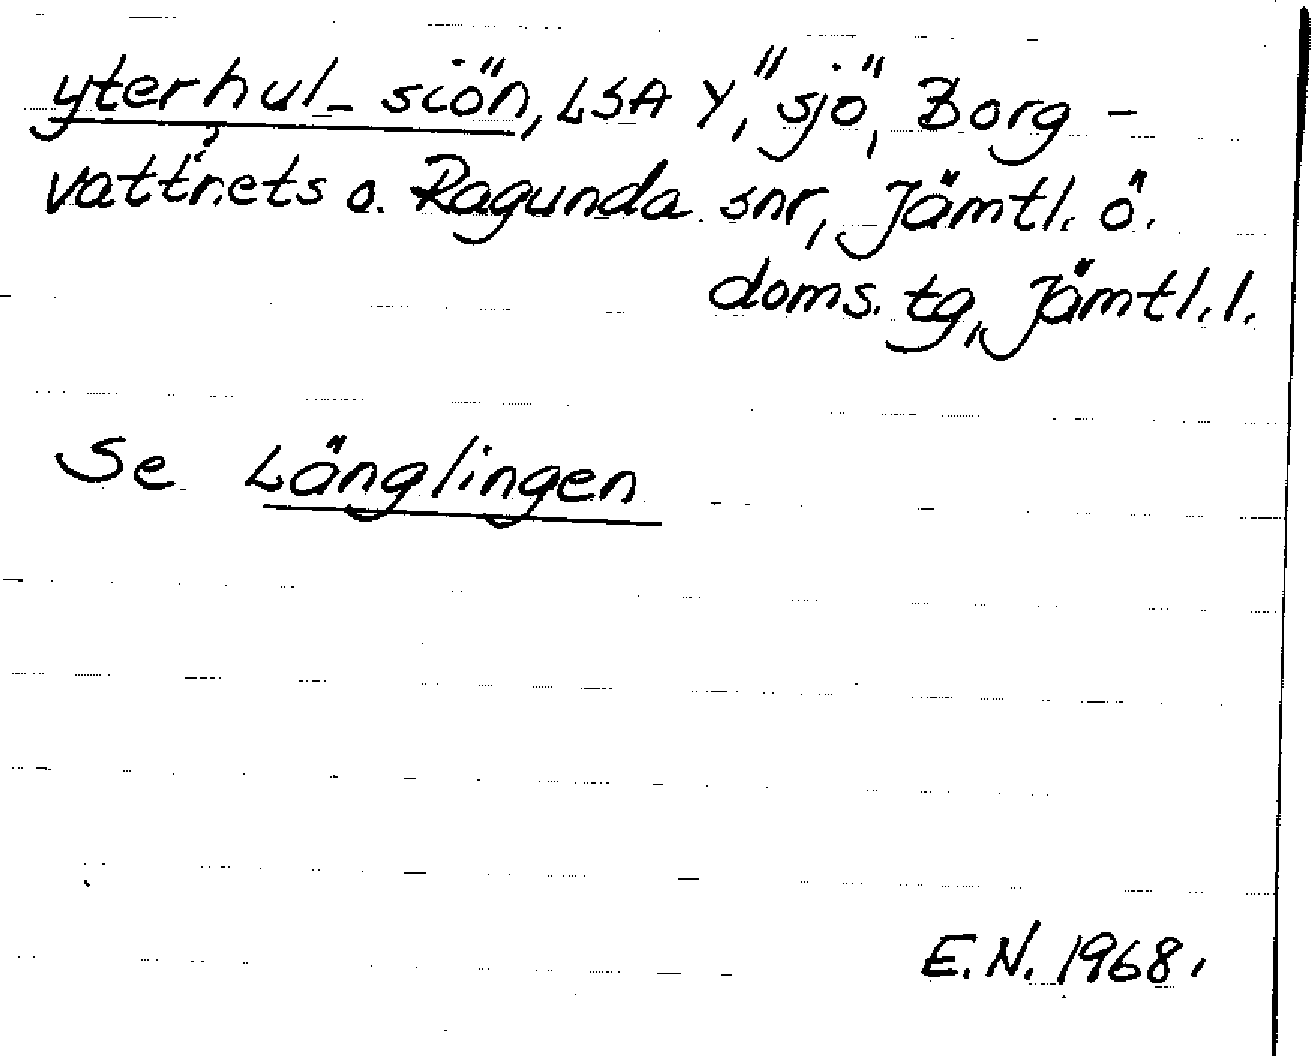 yterhul_ siön, LSA Y, "sjö", Borg-
vattnets o. Ragunda snr, Jämtl. ö.
doms. tg, Jämtl. l.
Se Länglingen
E.N. 1968.